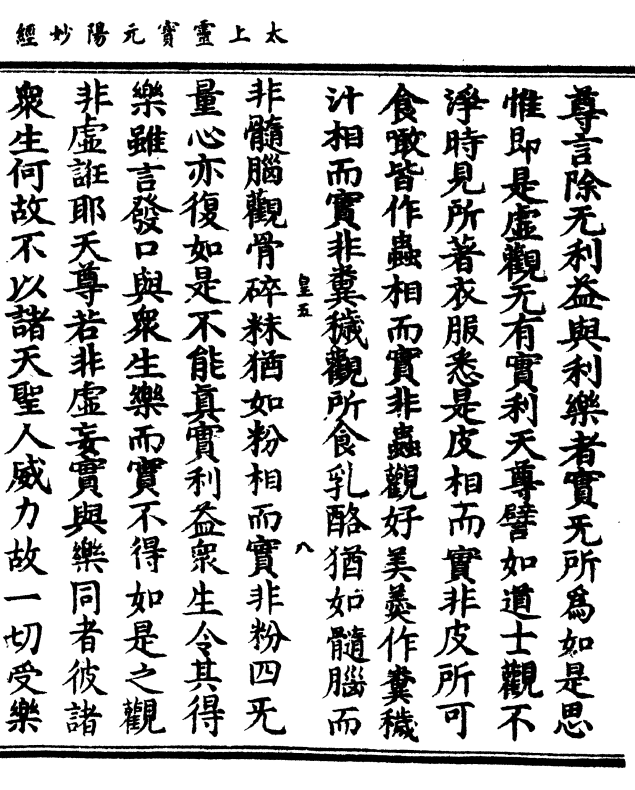 太上靈寶元陽妙經
尊言除无利益與利樂者實无所為如是思
惟即是虛觀无有實利天尊譬如道士觀不
淨時見所著衣服悉是皮相而實非皮所可
食噉皆作蟲相而實非蟲觀好美羹作糞穢
汁相而實非糞穢觀所食乳酪猶如髓腦而
皇五
八
非髓腦觀骨碎粖猶如粉相而實非粉四无
量心亦復如是不能真實利益衆生令其得
樂雖言發口與衆生樂而實不得如是之觀
非虛誑耶天尊若非虛妄實與樂同者彼諸
衆生何故不以諸天聖人威力故一切受樂